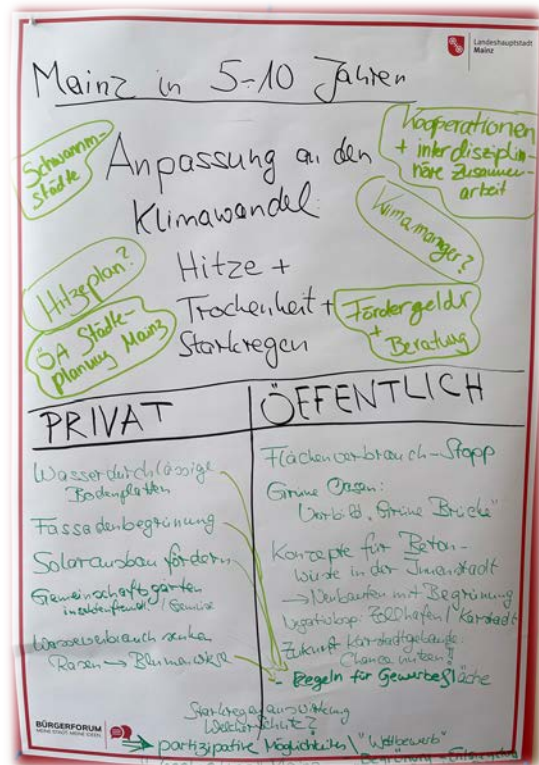 Landeshauptstadt
Mainz
Mainz in 5-10 Jahren
Schwamm-
städte
Anpassung an den
Klimawandel:
Hitze +
Trockenheit +
Starkregen
Kooperationen
+ interdisziplin-
näre Zusammen-
arbeit
Klimamanager?
Hitzeplan?
ÖA Städte-
planung Mainz
Fördergelder
+
Beratung
PRIVAT
Wasserdurchlässige
Bodenplatten
Fassadenbegrünung
Solarausbau fördern
Gemeinschaftsgärten
insektenfreundl. / Gemüse
Wasserverbrauch senken
Rasen → Blumenwiese
ÖFFENTLICH
Flächenverbrauch-Stopp
Grüne Oasen:
Vorbild „Grüne Brücke"
Konzepte für Beton-
wüste in der Innenstadt
→ Neubauten mit Begrünung
Zollhafen / Karstadt
Zukunft Karstadtgebäude:
Chance nutzen!
- Regeln für Gewerbefläche
Starkregenauswirkung
Welcher Schutz?
→ partizipative Möglichkeiten \ "Wettbewerb"
BÜRGERFORUM
MEINE STADT. MEINE IDEEN.